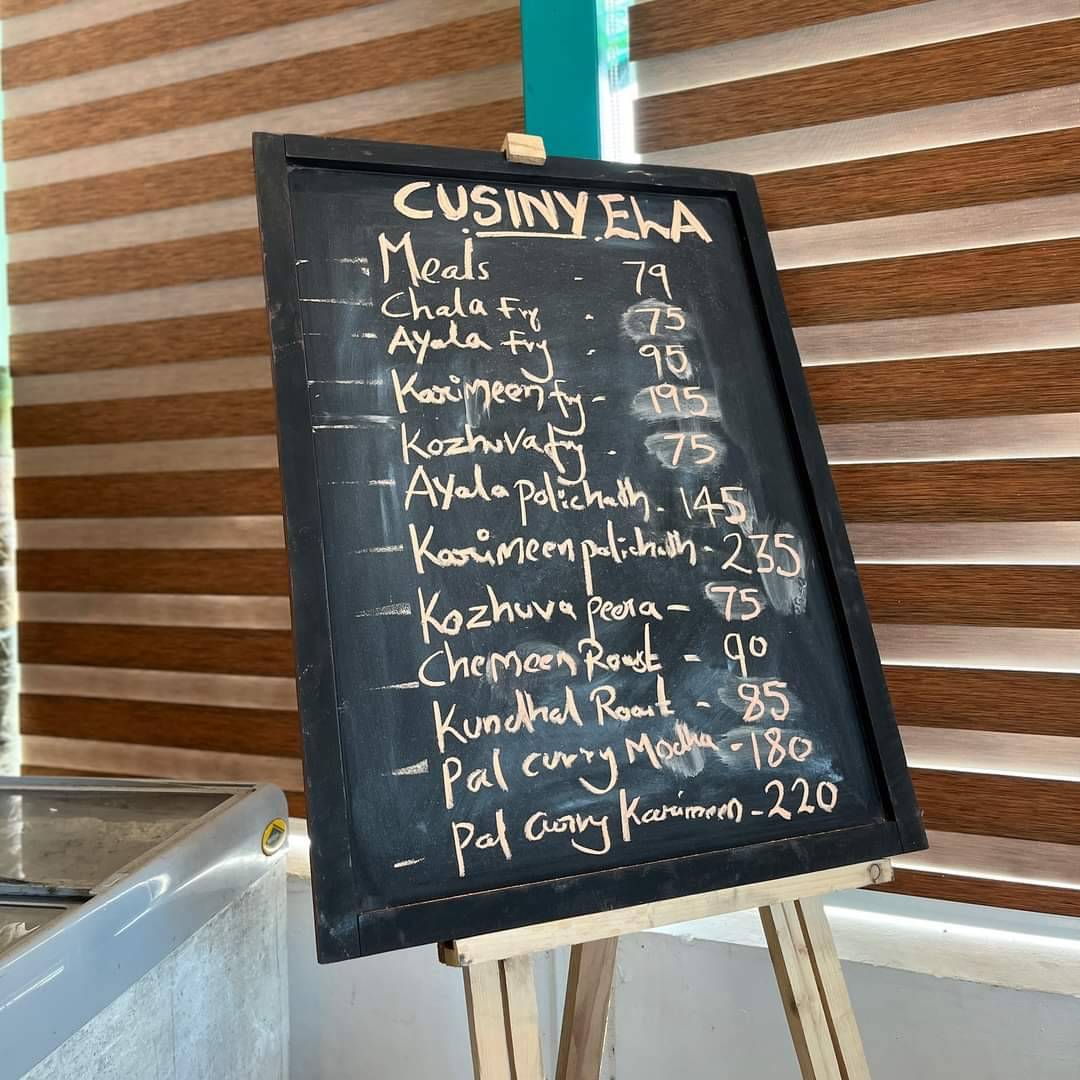 CUSINY ELA
Meals - 79
Chala Fry - 75
Ayala Fry - 95
Karimeen fry - 195
Kozhuva fry - 75
Ayala polichath - 145
Karimeen polichath - 235
Kozhuva peera - 75
Chemeen Roast - 90
Kundhal Roast - 85
Pal curry Modha - 180
Pal curry Karimeen - 220